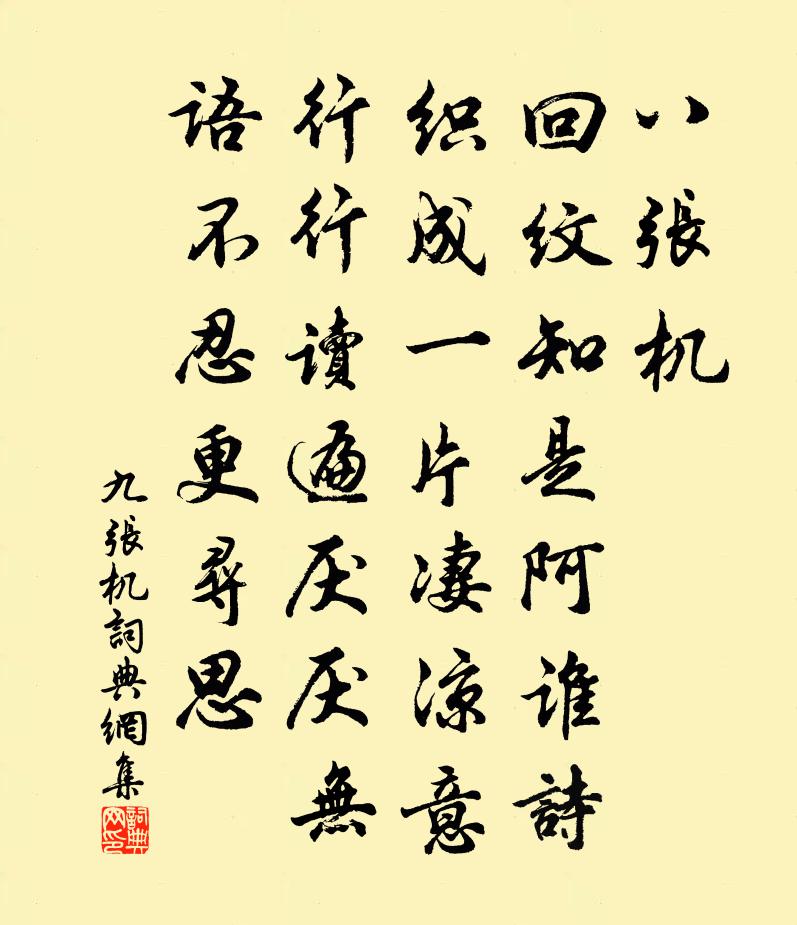 八張机
回纹知是阿谁詩
织成一片凄凉意
行行讀遍厌厌無
语不忍更尋思
九張机詞典網集
詞典
网印